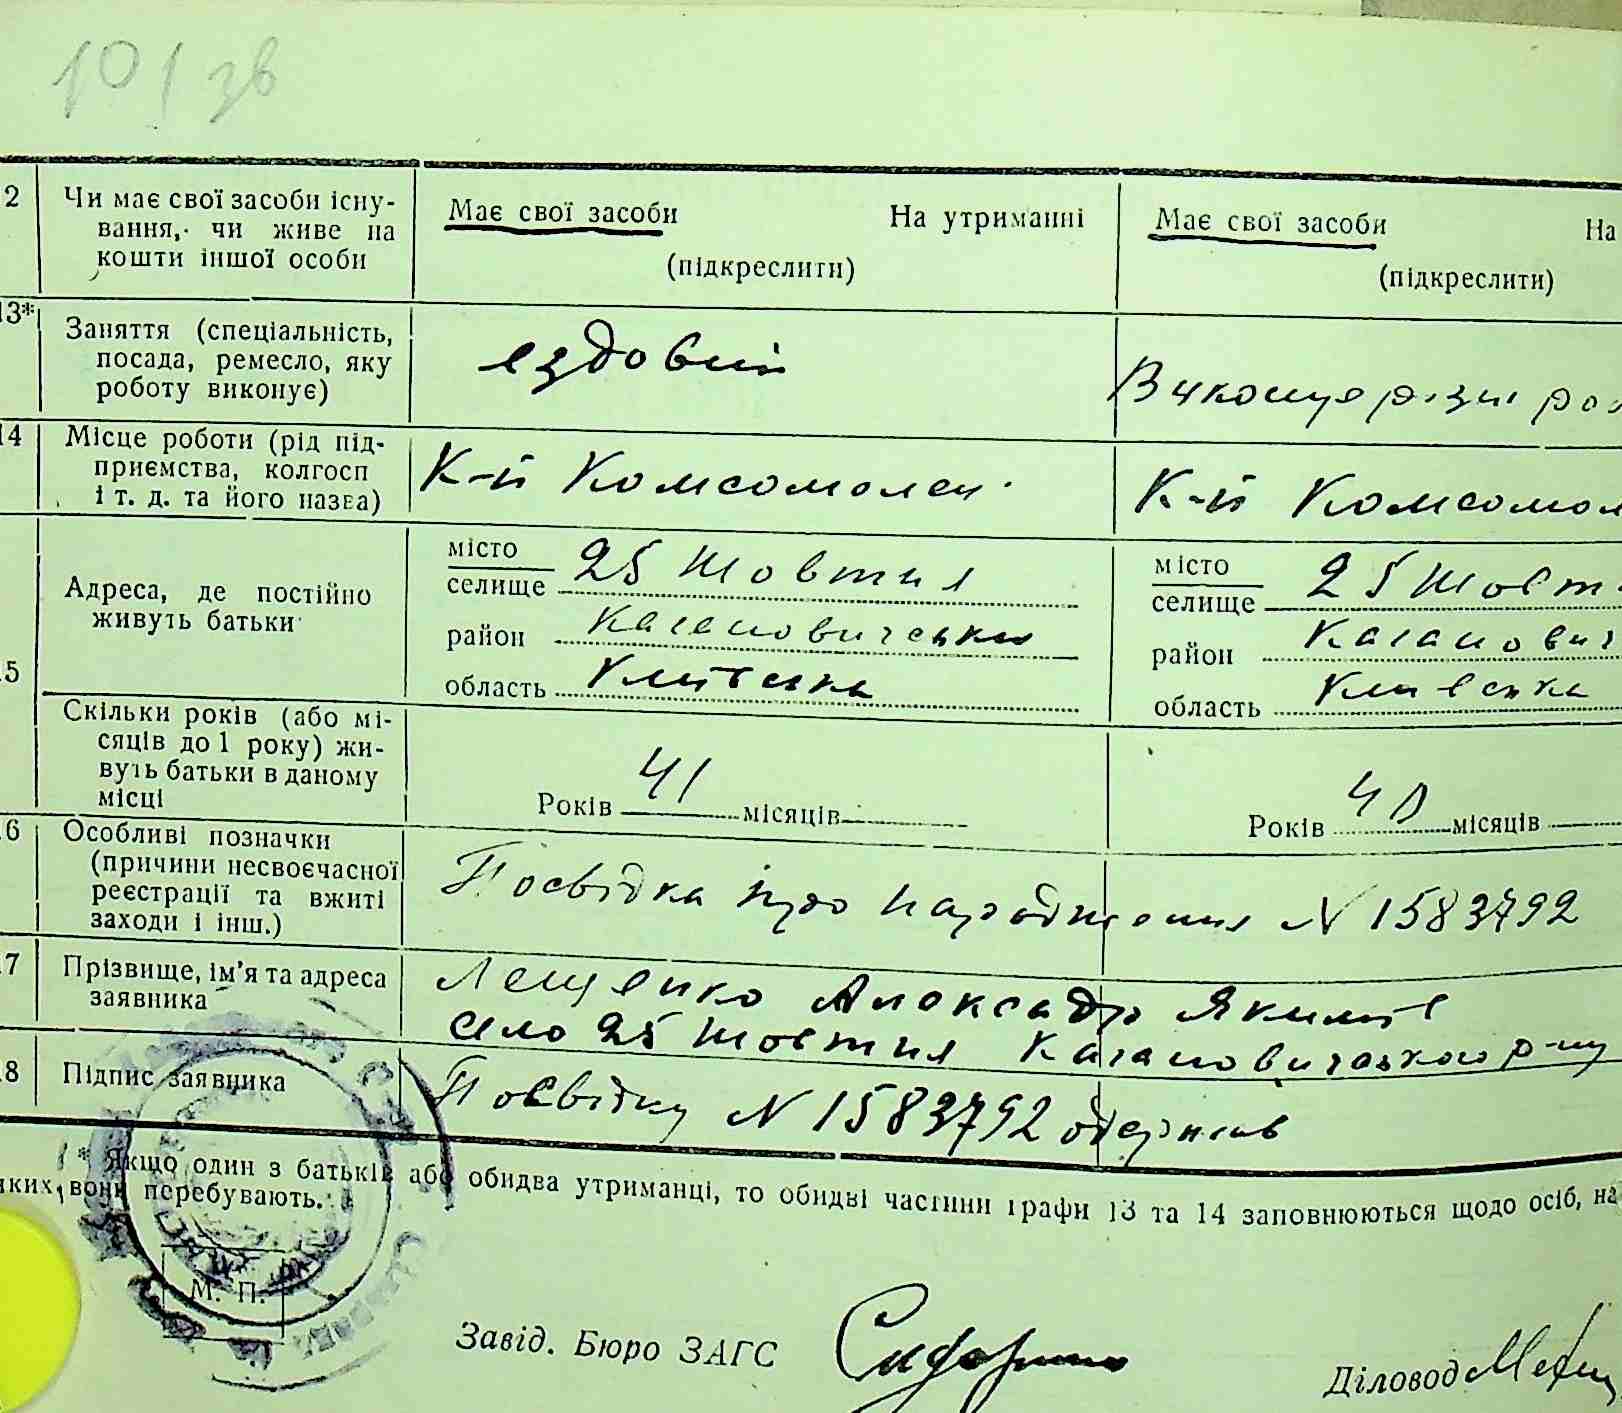 101 зв
2 Чи має свої засоби існу-
вання, чи живе на
кошти іншої особи
Має свої засоби На утриманні
(підкреслити)
Має свої засоби На
(підкреслити)
13* Заняття (спеціальність,
посада, ремесло, яку
роботу виконує)
ездовий
Виконує різні роб
14 Місце роботи (рід під-
приємства, колгосп
і т. д. та його назва)
К-п Комсомолец
К-п Комсомол
5 Адреса, де постійно
живуть батьки
місто
селище 25 Жовтня
район Кагановичськи
область Київська
місто
селище 25 Жовт
район Каганович
область Київська
Скільки років (або мі-
сяців до 1 року) жи-
вуть батьки в даному
місці
Років 41 місяців
Років 40 місяців
6 Особливі позначки
(причини несвоєчасної
реєстрації та вжиті
заходи і інш.)
Посвідка про народження N 1583792
7 Прізвище, ім'я та адреса
заявника
Лещенко Александр Якимів
село 25 Жовтня Кагановичського р-ну
8 Підпис заявника
Посвідку N 1583792 одержав
* Якщо один з батьків або обидва утриманці, то обидві частини графи 13 та 14 заповнюються щодо осіб, на
яких вони перебувають.
М. П.
Завід. Бюро ЗАГС
Діловод